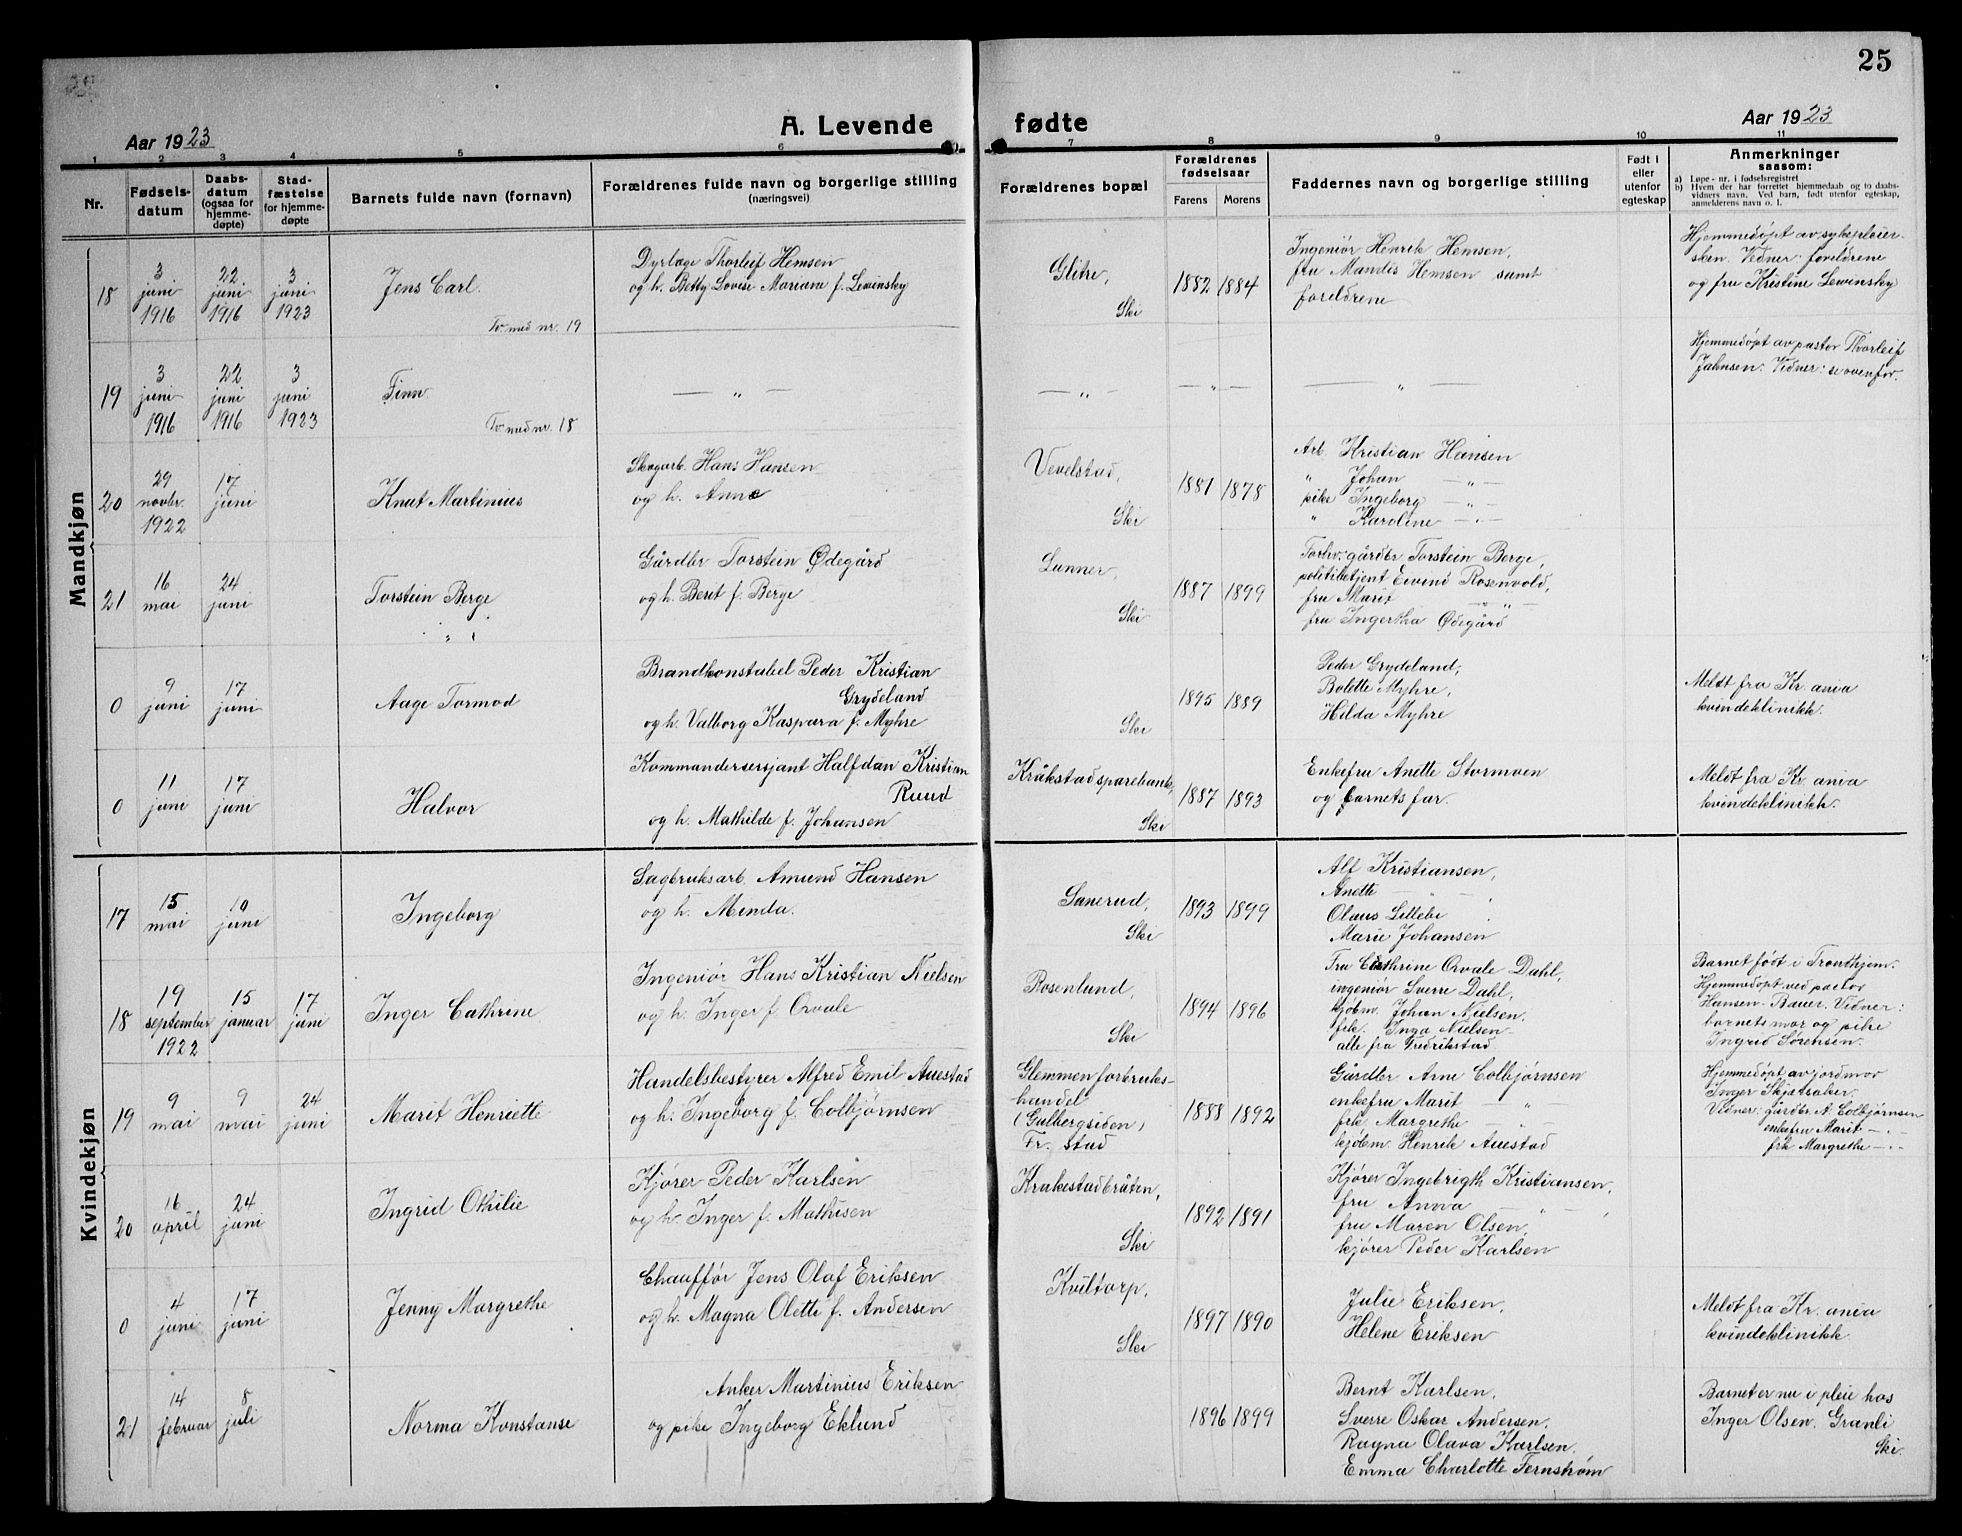 25
Aar 1923
A. Levende fødte
Aar 1923
1 2 3 4 5 6 7 8 9 10 11
Nr.
Fødselsdatum
Daabsdatum (ogsaa for hjemmedøpte)
Stadfæstelse for hjemmedøpte
Barnets fulde navn (fornavn)
Forældrenes fulde navn og borgerlige stilling (næringsvei)
Forældrenes bopæl
Forældrenes fødselsaar
Farens
Morens
Faddernes navn og borgerlige stilling
Født i eller utenfor egteskap
Anmerkninger
saasom:
a) Løpe-nr. i fødselsregistret
b) Hvem der har forrettet hjemmedaab og to daabsvidners navn. Ved barn, født utenfor egteskap, anmelderens navn o. l.
Mandkjøn
18
3 juni 1916
22 juni 1916
3 juni 1923
Jens Carl.
Tv. med nr. 19
Dyrlæge Thorleif Hemsen
og h. Betty Lovise Mariane f. Lewinsky
Glitre,
Ski
1882 1884
Ingeniør Henrik Hemsen,
fru Mandis Hemsen samt
foreldrene
Hjemmedøpt av sykepleier-
sken. Vidner: foreldrene
og fru Kristine Lewinsky
19
3 juni 1916
22 juni 1916
3 juni 1923
Finn
Tv. med nr. 18
— „ —
— „ —
— „ —
— „ —
Hjemmedøpt av pastor Thorleif
Jahnsen. Vidner: se ovenfor.
20
29 novbr. 1922
17 juni
Knut Martinius
Skogarb. Hans Hansen
og h. Anne
Vevelstad,
Ski
1881 1878
Arb. Kristian Hansen
„ Johan — „ —
pike Ingeborg — „ —
„ Karoline — „ —
21
16 mai
24 juni
Torstein Berge
„
Gårdbr Torstein Ødegård
og h. Berit f. Berge
Lunner,
Ski
1887 1899
Forhv. gårdbr Torstein Berge,
politibetjent Eivind Rosenvold,
fru Marit — „ —
fru Ingertha Ødegård
0
9 juni
17 juni
Aage Tormod
Brandkonstabel Peder Kristian
Grydeland
og h. Valborg Kaspara f. Myhre
Ski
1895 1889
Peder Grydeland,
Bolette Myhre,
Hilda Myhre
Meldt fra Kr. ania
kvindeklinikk.
0
11 juni
17 juni
Halvor
Kommandersersjant Halfdan Kristian
Ruud
og h. Mathilde f. Johansen
Kråkstad sparebank,
Ski
1887 1893
Enkefru Anette Stormoen
og barnets far.
Meldt fra Kr. ania
kvindeklinikk.
Kvindekjøn
17
15 mai
10 juni
Ingeborg
Sagbruksarb. Amund Hansen
og h. Menda.
Sanerud,
Ski
1893 1899
Alf Kristiansen,
Anette — „
Olaus Lillebi
Marie Johansen
18
19 september 1922
15 januar
17 juni
Inger Cathrine
Ingeniør Hans Kristian Nielsen
og h. Inger f. Orvale
Rosenlund,
Ski
1894 1896
Fru Cathrine Orvale Dahl,
ingeniør Sverre Dahl,
kjøbm. Johan Nielsen,
frk. Inga Nielsen
alle fra Fredrikstad
Barnet født i Trontkjem.
Hjemmedøpt ved pastor
Hansen-Bauer. Vidner:
barnets mor og pike
Ingrid Sørensen.
19
9 mai
9 mai
24 juni
Marit Henriette
Handelsbestyrer Alfred Emil Auestad
og h. Ingeborg f. Colbjørnsen
Glemmen forbruks-
handel
(Gulbergsiden)
Fr. stad
1888 1892
Gårdbr Arne Colbjørnsen
enkefru Marit — „ —
frk Margrethe — „ —
kjøbm. Henrik Auestad
Hjemmedøpt av jordmor
Inger Skjetsaber.
Vidner: gårdbr. A. Colbjørnsen
enkefru Marit — „ —
frk Margrethe — „ —
20
16 april
24 juni
Ingrid Othilie
Kjører Peder Karlsen
og h. Inger f. Mathisen
Krakestadbråten,
Ski
1892 1891
Kjører Ingebrigth Kristiansen,
fru Anna — „ —
fru Maren Olsen,
kjører Peder Karlsen
0
4 juni
17 juni
Jenny Margrethe
Chauffør Jens Olaf Eriksen
og h. Magna Olette f. Andersen
Kviltorp,
Ski
1897 1890
Julie Eriksen,
Helene Eriksen
Meldt fra Kr. ania
kvindeklinikk.
21
14 februar
8 juli
Norma Konstanse
Anker Martinius Eriksen
og pike Ingeborg Eklund
1896 1899
Bernt Karlsen,
Sverre Oskar Andersen,
Ragna Olava Karlsen,
Emma Charlotte Fernstrøm
Barnet er nu i pleie hos
Inger Olsen, Granli
Ski.